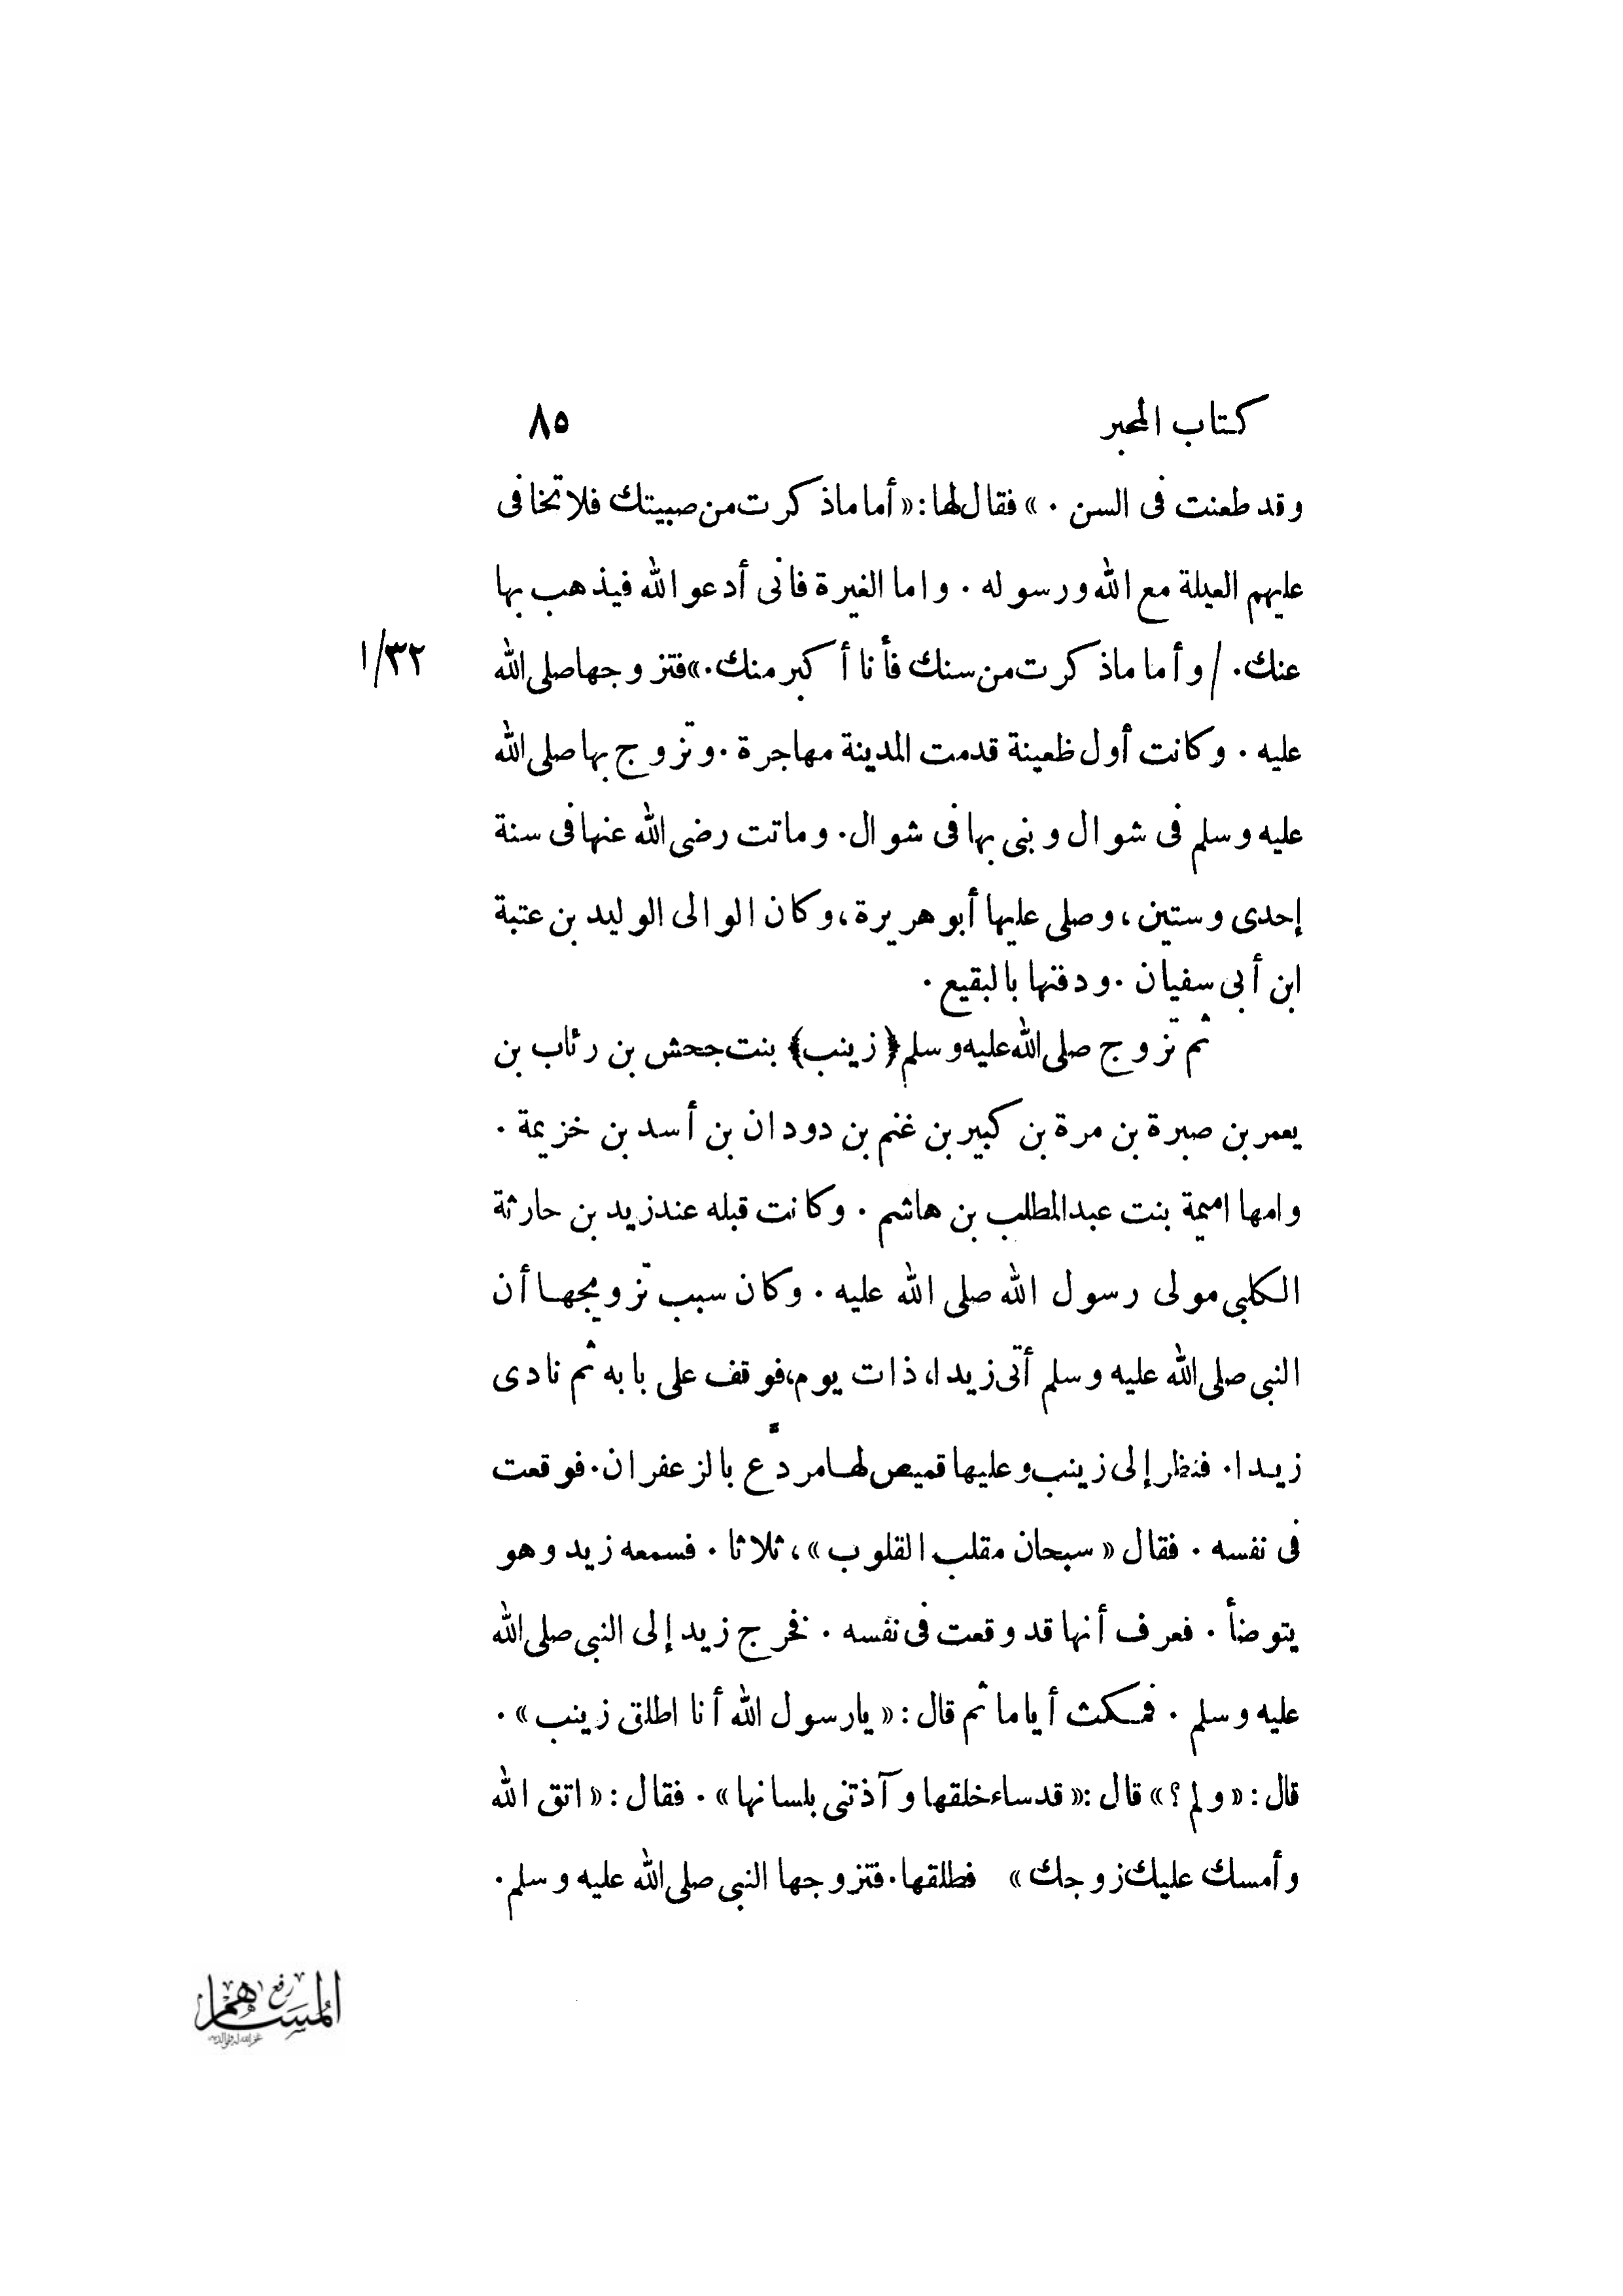 كتاب المحبر ٨٥
وقد طعنت فى السن . » فقال لها : « أما ما ذكرت من صبيتك فلا تخافى
عليهم العيلة مع الله ورسوله . واما الغيرة فانى أدعو الله فيذهب بها
عنك . / وأما ما ذكرت من سنك فأنا أكبر منك . » فتزوجها صلى الله ١/٣٢
عليه . وكانت أول ظعينة قدمت المدينة مهاجرة . وتزوج بها صلى الله
عليه وسلم فى شوال وبنى بها فى شوال . وماتت رضى الله عنها فى سنة
إحدى وستين ، وصلى عليها أبو هريرة ، وكان الوالى الوليد بن عتبة
ابن أبى سفيان . ودفنها بالبقيع .
ثم تزوج صلى الله عليه وسلم ﴿ زينب ﴾ بنت جحش بن رئاب بن
يعمر بن صبرة بن مرة بن كبير بن غنم بن دودان بن أسد بن خزيمة .
وامها اميمة بنت عبد المطلب بن هاشم . وكانت قبله عند زيد بن حارثة
الكلبى مولى رسول الله صلى الله عليه . وكان سبب تزويجها أن
النبى صلى الله عليه وسلم أتى زيدا ، ذات يوم ، فوقف على بابه ثم نادى
زيدا . فنظر إلى زينب وعليها قميص لها مردّع بالزعفران . فوقعت
فى نفسه . فقال « سبحان مقلب القلوب » ، ثلاثا . فسمعه زيد وهو
يتوضأ . فعرف أنها قد وقعت فى نفسه . فخرج زيد إلى النبى صلى الله
عليه وسلم . فمكث أياما ثم قال : « يا رسول الله أنا اطلق زينب » .
قال : « ولم ؟ » قال : « قد ساء خلقها وآذتنى بلسانها » . فقال : « اتق الله
وأمسك عليك زوجك » فطلقها . فتزوجها النبى صلى الله عليه وسلم .
رفع
المساهم